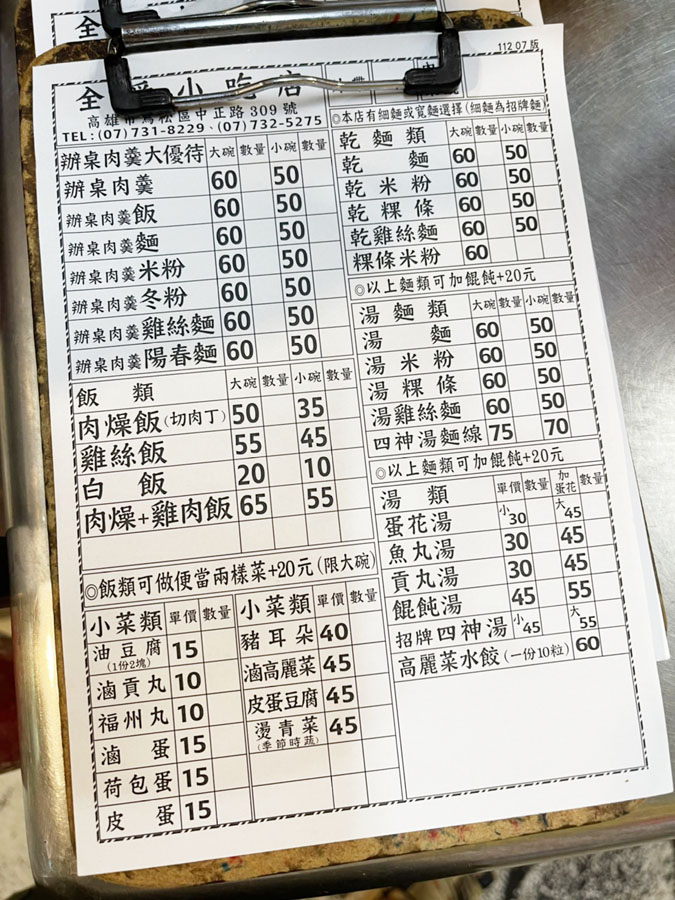 全
112 07 版
全 小吃店
高雄市鳥松區中正路309號
TEL:(07)731-8229、(07)732-5275
辦桌肉羹大優待 大碗 數量 小碗 數量
辦桌肉羹 60 50
辦桌肉羹飯 60 50
辦桌肉羹麵 60 50
辦桌肉羹米粉 60 50
辦桌肉羹冬粉 60 50
辦桌肉羹雞絲麵 60 50
辦桌肉羹陽春麵 60 50
飯類 大碗 數量 小碗 數量
肉燥飯(切肉丁) 50 35
雞絲飯 55 45
白飯 20 10
肉燥+雞肉飯 65 55
◎飯類可做便當兩樣菜+20元(限大碗)
小菜類 單價 數量
油豆腐 15
(1份2塊)
滷貢丸 10
福州丸 10
滷蛋 15
荷包蛋 15
皮蛋 15
小菜類 單價 數量
豬耳朵 40
滷高麗菜 45
皮蛋豆腐 45
燙青菜 45
(季節時蔬)
◎本店有細麵或寬麵選擇(細麵為招牌麵)
乾麵類 大碗 數量 小碗 數量
乾麵 60 50
乾米粉 60 50
乾粿條 60 50
乾雞絲麵 60 50
粿條米粉 60
◎以上麵類可加餛飩+20元
湯麵類 大碗 數量 小碗 數量
湯麵 60 50
湯米粉 60 50
湯粿條 60 50
湯雞絲麵 60 50
四神湯麵線 75 70
◎以上麵類可加餛飩+20元
湯類 單價 數量 加蛋花 數量
蛋花湯 小30 大45
魚丸湯 30 45
貢丸湯 30 45
餛飩湯 45 55
招牌四神湯 小45 大55
高麗菜水餃(一份10粒) 60